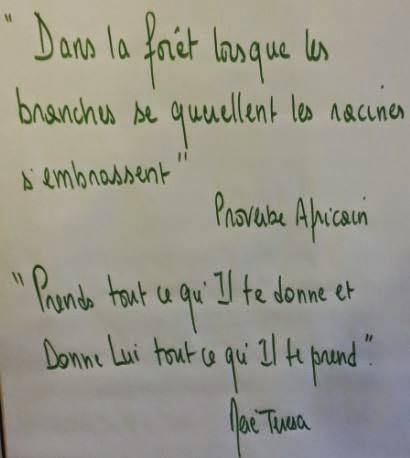 "Dans la forêt lorsque les
branches se querellent les racines
s'embrassent"
Proverbe Africain
"Prends tout ce qu'Il te donne et
Donne Lui tout ce qu'Il te prend".
Mère Teresa